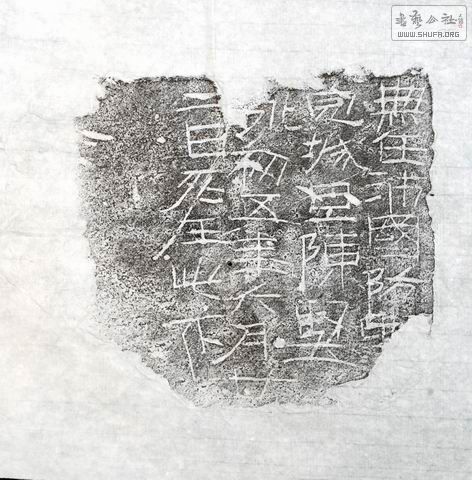 書藝公社
WWW.SHUFA.ORG
無任沛國
完城旦陣
初五年六月廿
二日死在此下